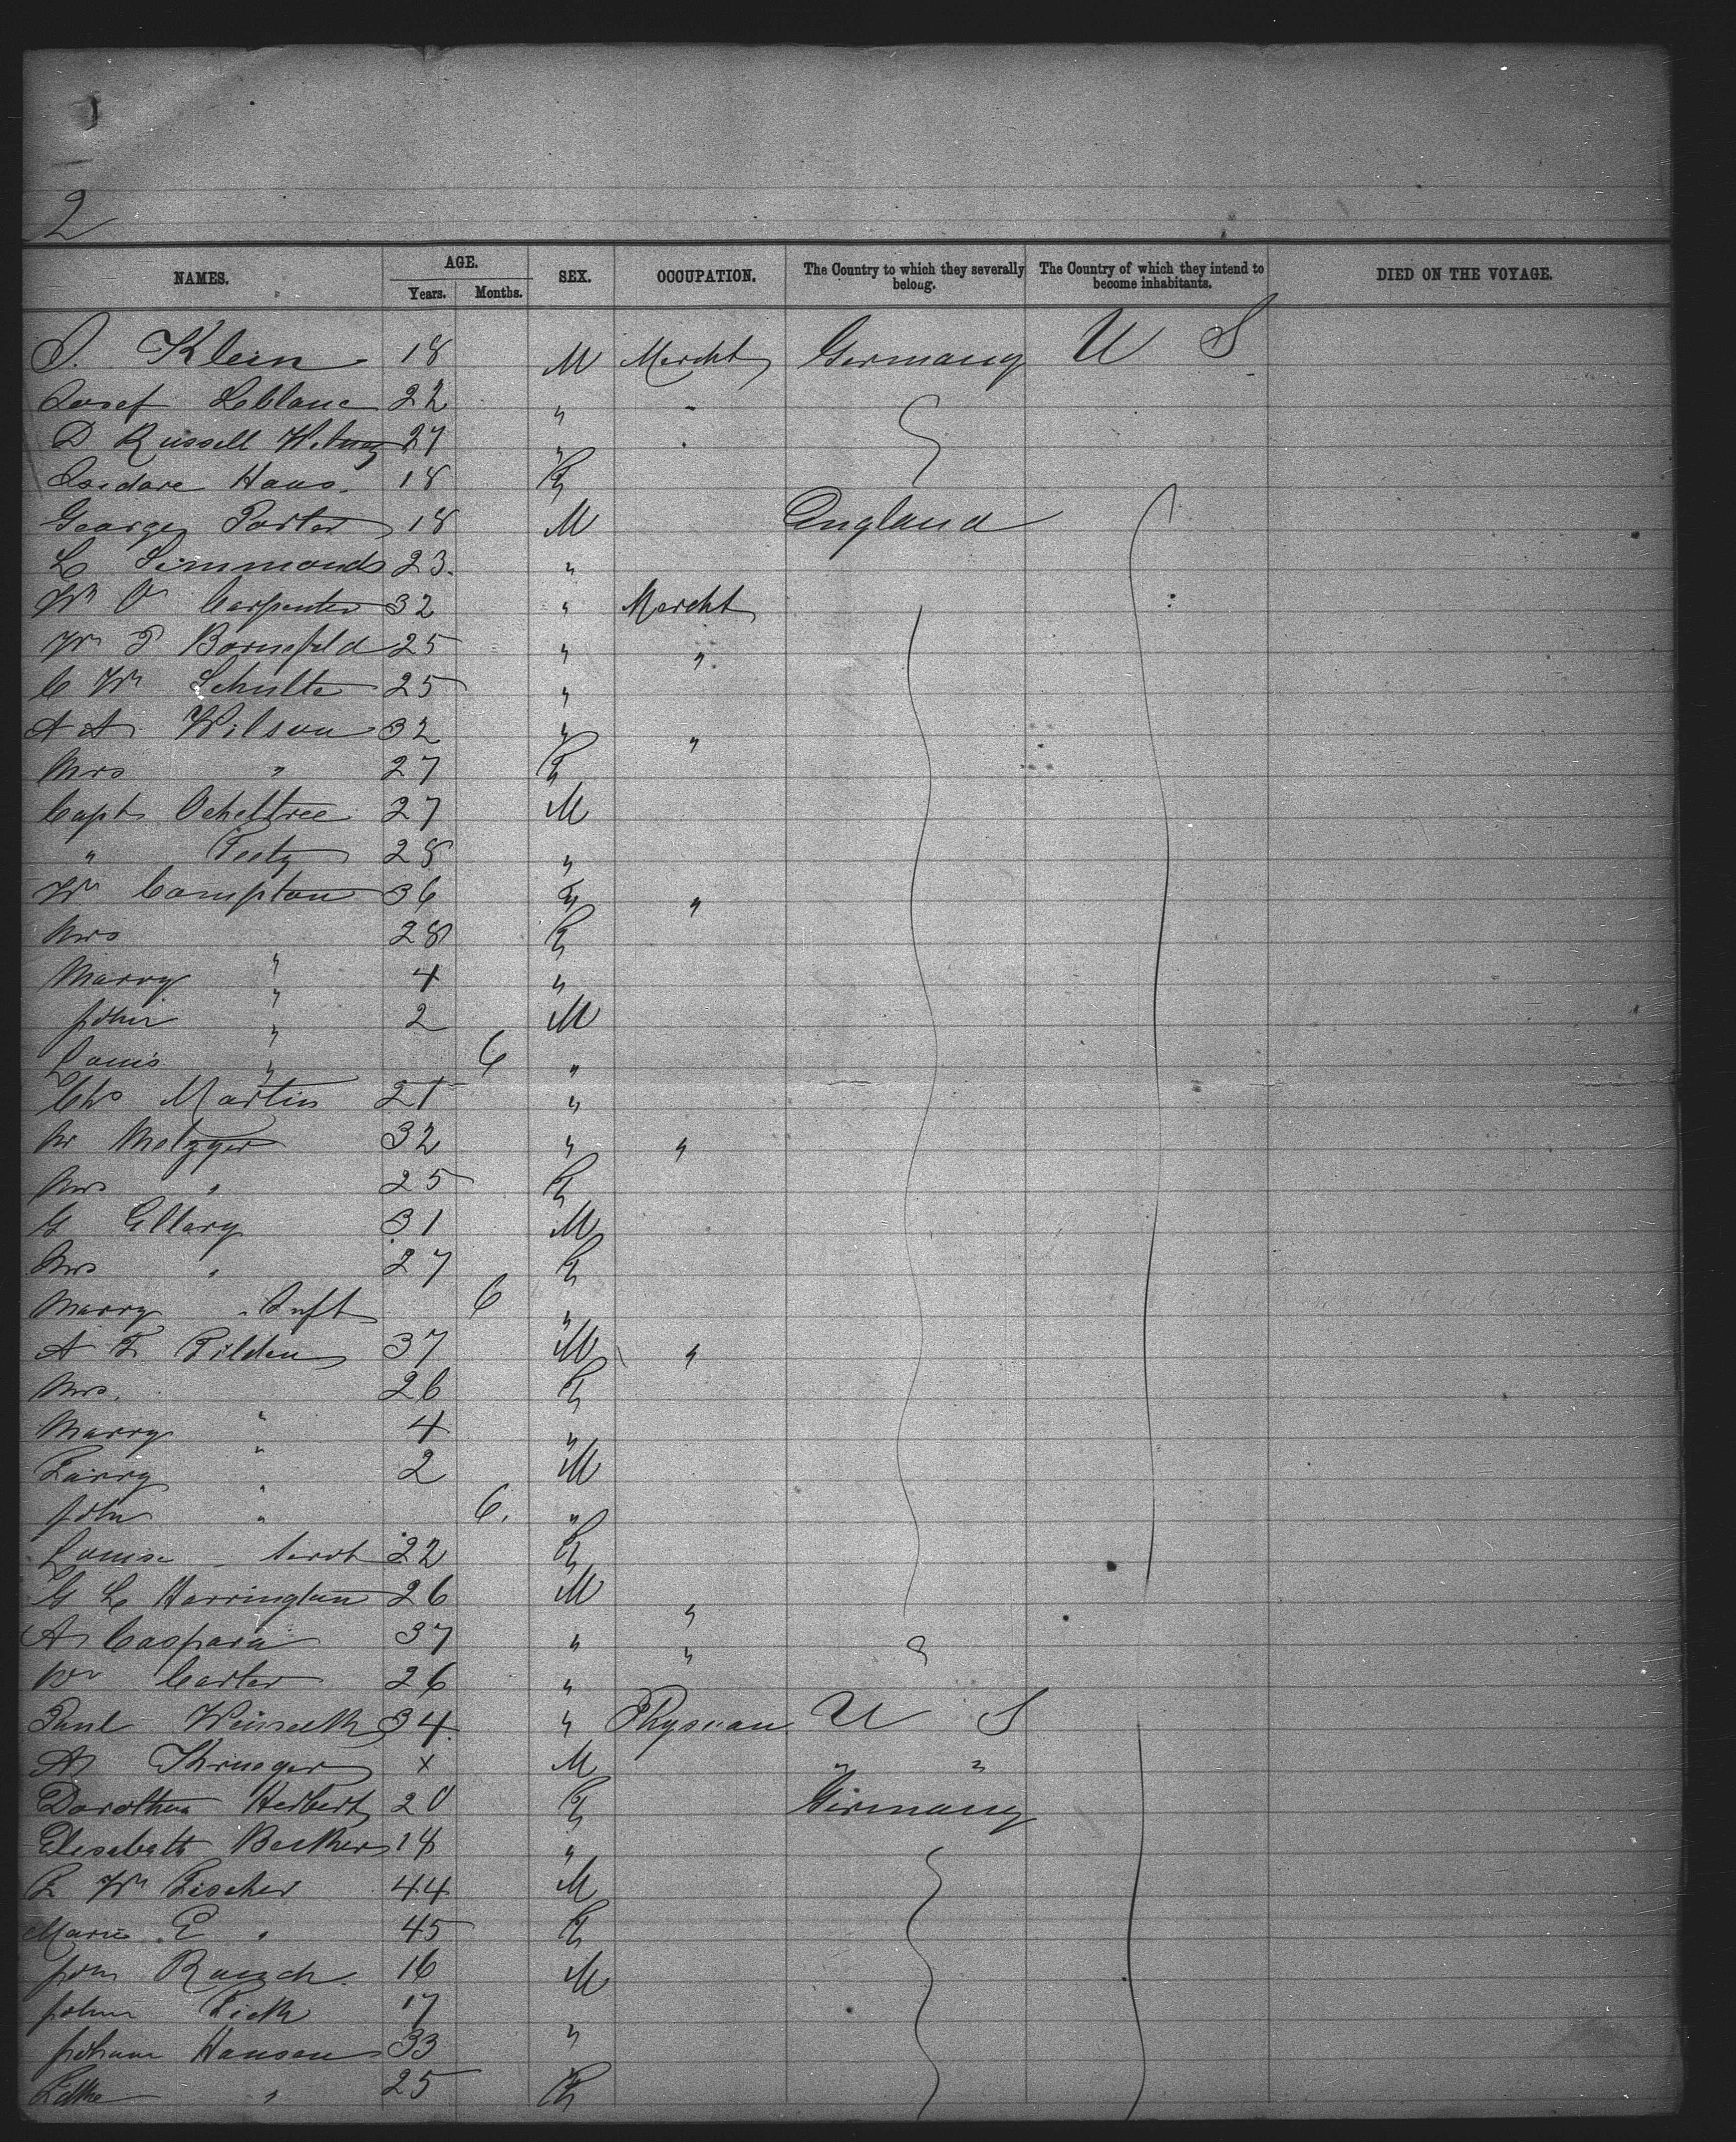 2
NAMES. AGE. SEX. OCCUPATION. The Country to which they severally belong. The Country of which they intend to become inhabitants. DIED ON THE VOYAGE.
Years. Months.
J. Klein 18 M Mercht Germany U S
Josef Leblanc 22 " "
D Russell 27 "
Isidore Haas. 18 F
George Porter 18 M England
L Simmonds 23. "
Wm Carpenter 32 " Mercht
Wm Bornefeld 25 " "
C Wm Schulte 25 "
A A Wilson 32 " "
Mrs " 27 F
Capt Ocheltree 27 M
" 28 "
Wm Compton 36 " "
Mrs " 28 F
Marry " 4 "
John " 2 M
Louis " 6 "
Chs Martin 21 "
M Metzger 32 " "
Mrs " 25 F
G Ellery 31 M
Mrs " 27 F
Marry " Inft 6 "
A F Tilden 37 M "
Mrs. " 26 F
Marry " 4 "
Harry " 2 M
John " 6. "
Louise Servt 22 F
G L Harrington 26 M "
A Caspara 37 " "
Wm Carter 26 "
Paul 34. " Physician U S
A Krueger x M " "
Dorothea Herbert 20 F Germany
Elisabeth 18 "
F Wm Fischer 44 M
Marie E " 45 F
John 16 M
Johann 17 "
Johann Hansen 33
" 25 F